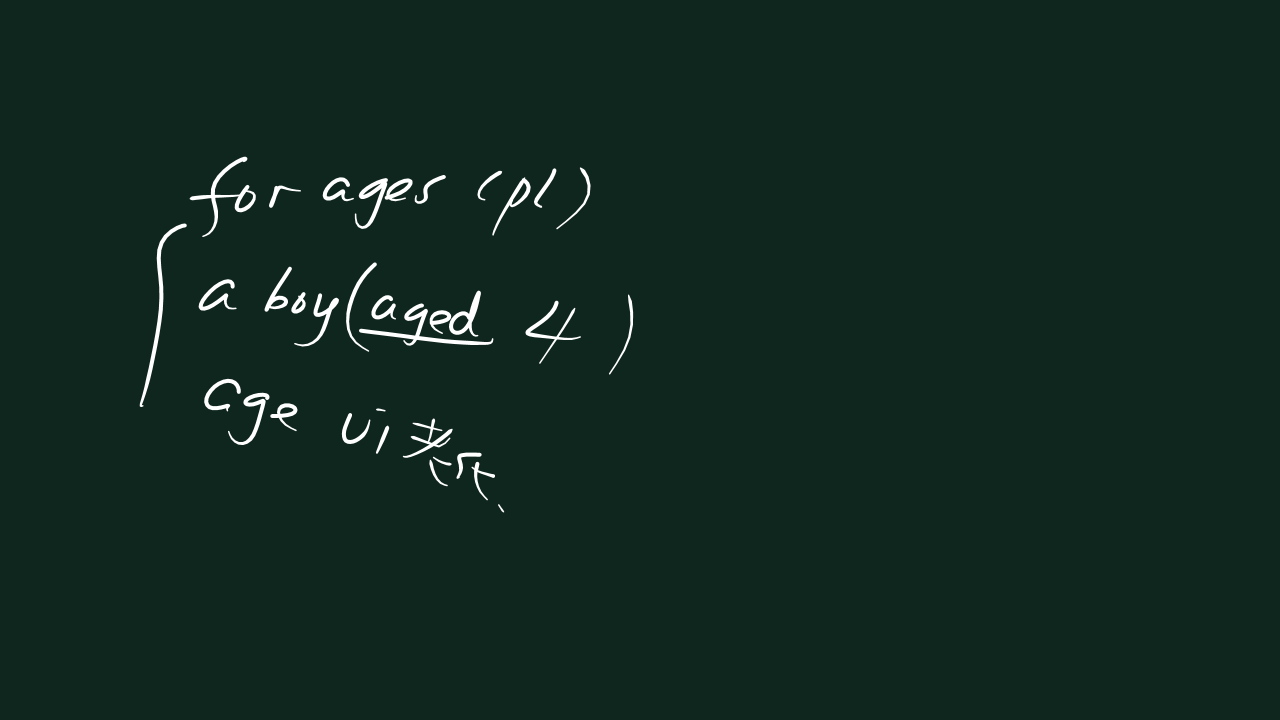 for ages (pl)
a boy (aged 4)
age vi 老化